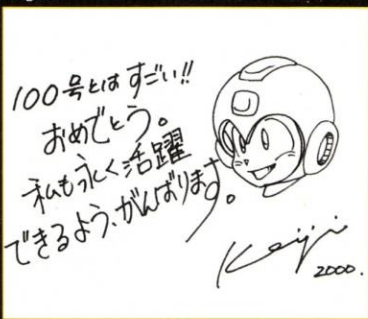 100号とはすごい!!
おめでとう。
私も永く活躍
できるよう、がんばります。
Keiji
2000.